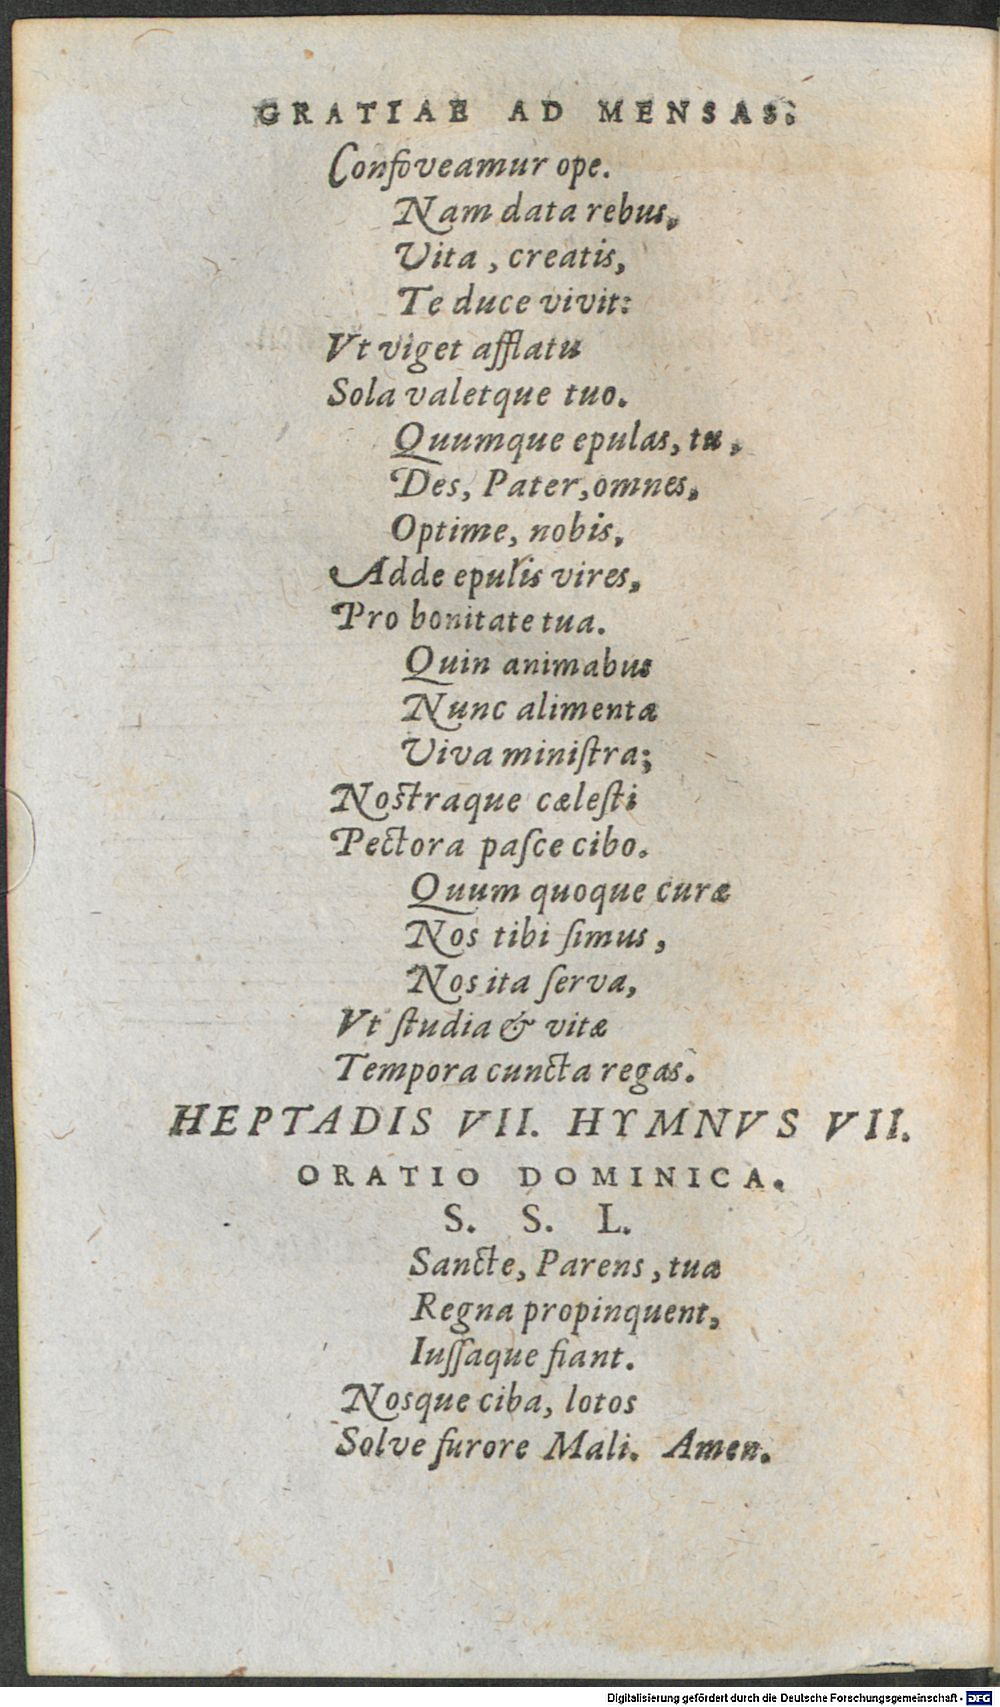 GRATIAE AD MENSAS.
Confoveamur ope.
Nam data rebus,
Vita, creatis,
Te duce vivit:
Vt viget afflatu
Sola valetque tuo.
Quumque epulas, tu,
Des, Pater, omnes,
Optime, nobis,
Adde epulis vires,
Pro bonitate tua.
Quin animabus
Nunc alimenta
Viva miniſtra;
Noſtraque cæleſti
Pectora paſce cibo.
Quum quoque curæ
Nos tibi ſimus,
Nos ita ſerva,
Vt ſtudia & vitæ
Tempora cuncta regas.
HEPTADIS VII. HYMNVS VII.
ORATIO DOMINICA.
S. S. L.
Sancte, Parens, tua
Regna propinquent,
Iuſſaque fiant.
Nosque ciba, lotos
Solve furore Mali. Amen.
Digitalisierung gefördert durch die Deutsche Forschungsgemeinschaft - DFG